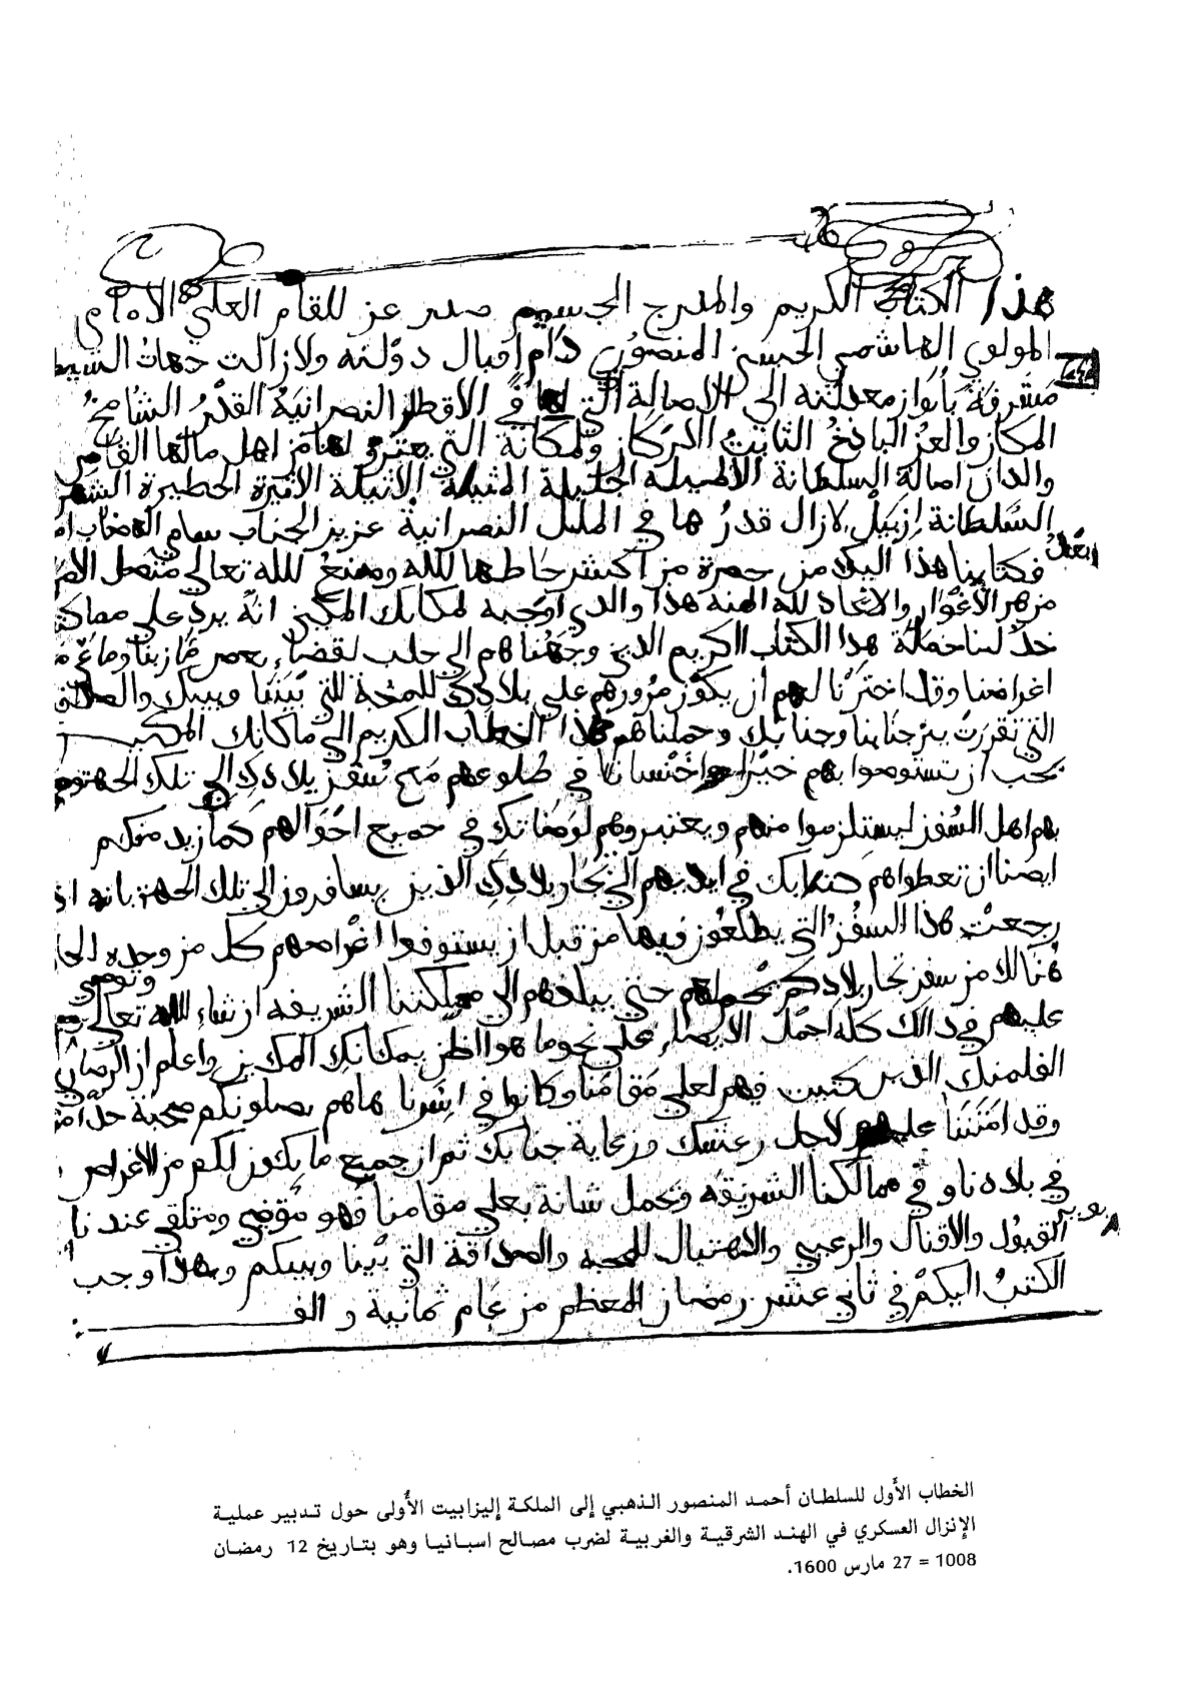 هذا الكتاب الكريم والمدرج الجسيم صدر عز للمقام العلي الامامي
المولوي الهاشمي الحسني المنصوري دام إقبال دولته ولازالت جهات
مشرقة بأنوار معدلته الى الاصالة التي لها في الاقطار النصرانية القدر الشامخ
المكان والعز الباذخ الثابت الاركان والمكانة التي يعترف لها من اهل ملتها القاصي
والدان اصالة السلطانة الاصيلة الجليلة المثيلة الاثيلة الاثيرة الخطيرة
السلطانة إزبيل لازال قدرها في الملل النصرانية عزيز الجناب سامي
فكتابنا هذا اليكم من حضرة مراكش حاطها الله وصنع الله تعالى متصل
والانجاد لله المنه هذا والذي اوجبه لمكانك المكين انه يرد على
حملة هذا الكتاب الكريم الذين وجهناهم الى حلب لقضاء بعض مآربنا
اغراضنا وقد اخترنا لهم ان يكون مرورهم على بلادك للمحبة التي بيننا وبينك
التي تقررت بين جنابنا وجنابك وحملناهم هذا الخطاب الكريم الى مكانك المكين
بحب ان تستوصوا بهم خيرا في طلوعهم مع سفن بلادك الى تلك الجهة
بهم اهل السفن ليستلزموا منهم ويعتبروهم لوصاتك في جميع احوالهم كما نريد منكم
ايضا ان تعطوهم كتابك في ايديهم الى تجار بلادك الذين يسافرون الى تلك الجهة بانه
رجعت هذا السفن التي يطلعون فيها من قبل ان يستوفوا اغراضهم كل من وجده
هنالك من سفن تجار بلادكم يحملهم حتى يبلغهم الى مملكتنا الشريفة ان شاء الله تعالى وتوصي
عليهم في ذالك كله اجمل الايصاء على نحو ما هو الظن بمكانك المكين واعلم ان
الفلمنك الذين كتبت فيهم لعلي مقامنا وكانوا في اسرنا هاهم يصلونكم صحبة
وقد امتننا عليهم لاجل رغبتك ورعاية جنابك ثم ان جميع ما يكون لكم من الاغراض
في بلادنا وفي ممالكنا الشريفة وتحمل شانه بعلي مقامنا فهو مقضي ومتلقى عندنا
القبول والاقبال والرعي والاهتبال للمحبة والصداقة التي بيننا وبينكم وبهذا وجب
الكتب اليكم في ثاني عشر رمضان المعظم من عام ثمانية و الف
الخطاب الأول للسلطان أحمد المنصور الذهبي إلى الملكة إليزابيت الأولى حول تدبير عملية
الإنزال العسكري في الهند الشرقية والغربية لضرب مصالح اسبانيا وهو بتاريخ 12 رمضان
1008 = 27 مارس 1600.